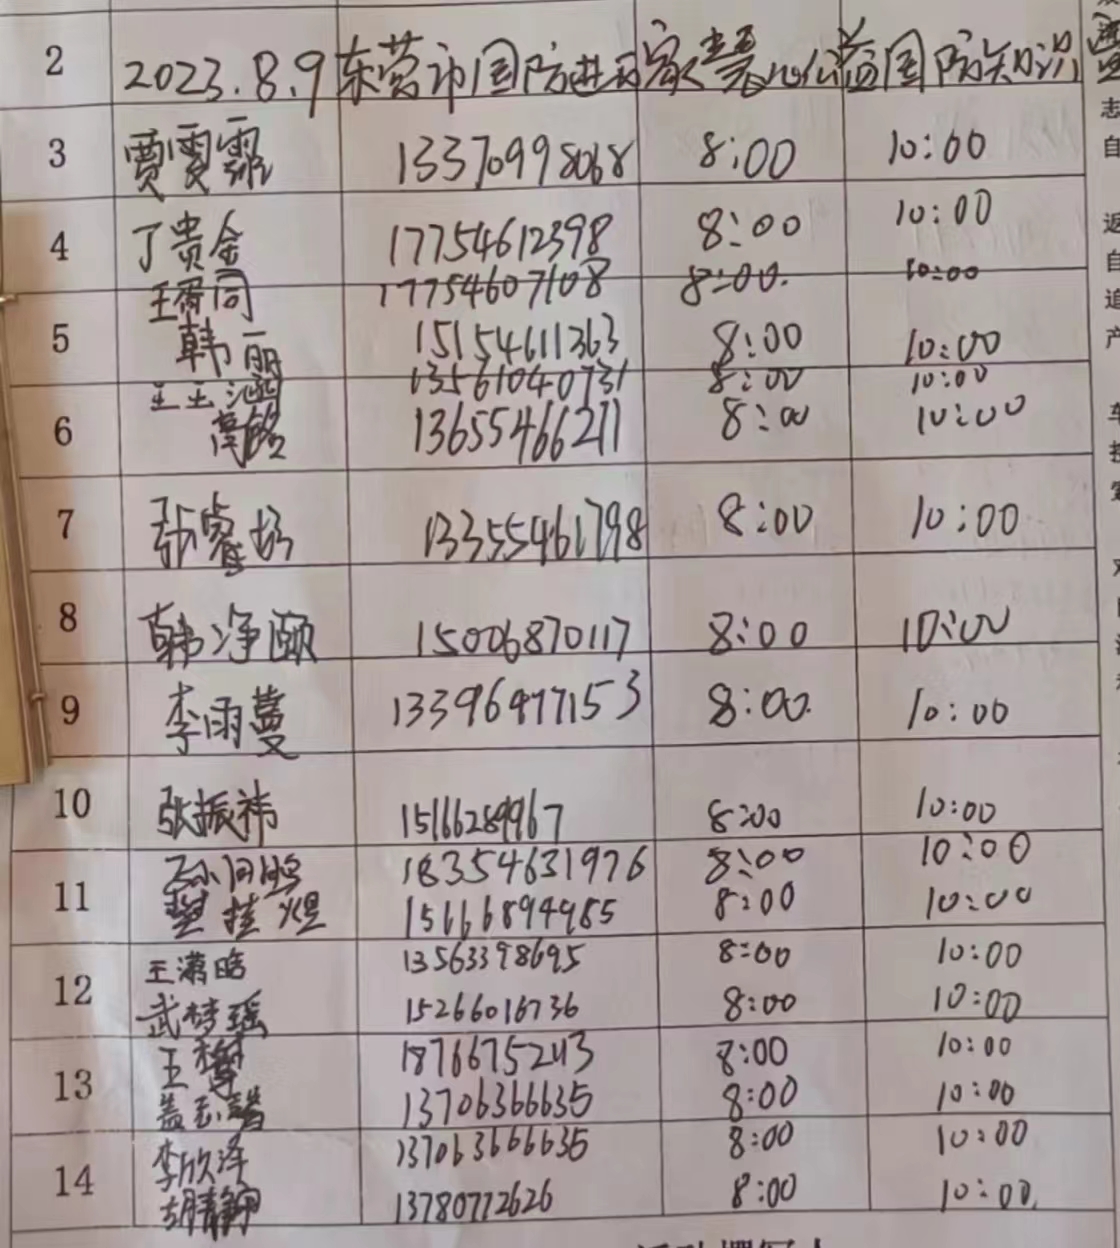 2 2023.8.9东营市国防进万家暨心公益国防知识
3 贾雯霏 13370998068 8:00 10:00
4 丁贵金 17754612398 8:00 10:00
王雨同 17754607108 8:00. 10:00
5 韩丽 15154611363 8:00 10:00
王玉涵 13561040731 8:00 10:00
6 高铭 13655466211 8:00 10:00
7 张睿 13355461798 8:00 10:00
8 韩净颐 15006870117 8:00 10:00
9 李雨蔓 13396497153 8:00. 10:00
10 张振祎 15166289967 8:00 10:00
18354631976 8:00 10:00
11 樊桂煜 15666894985 8:00 10:00
王潇晗 13563398695 8:00 10:00
12 武梦瑶 15266016736 8:00 10:00
王 18766752113 8:00 10:00
13 盖玉馨 13706366635 8:00 10:00
李欣泽 13706366635 8:00 10:00
14 胡静 13780772626 8:00 10:00.